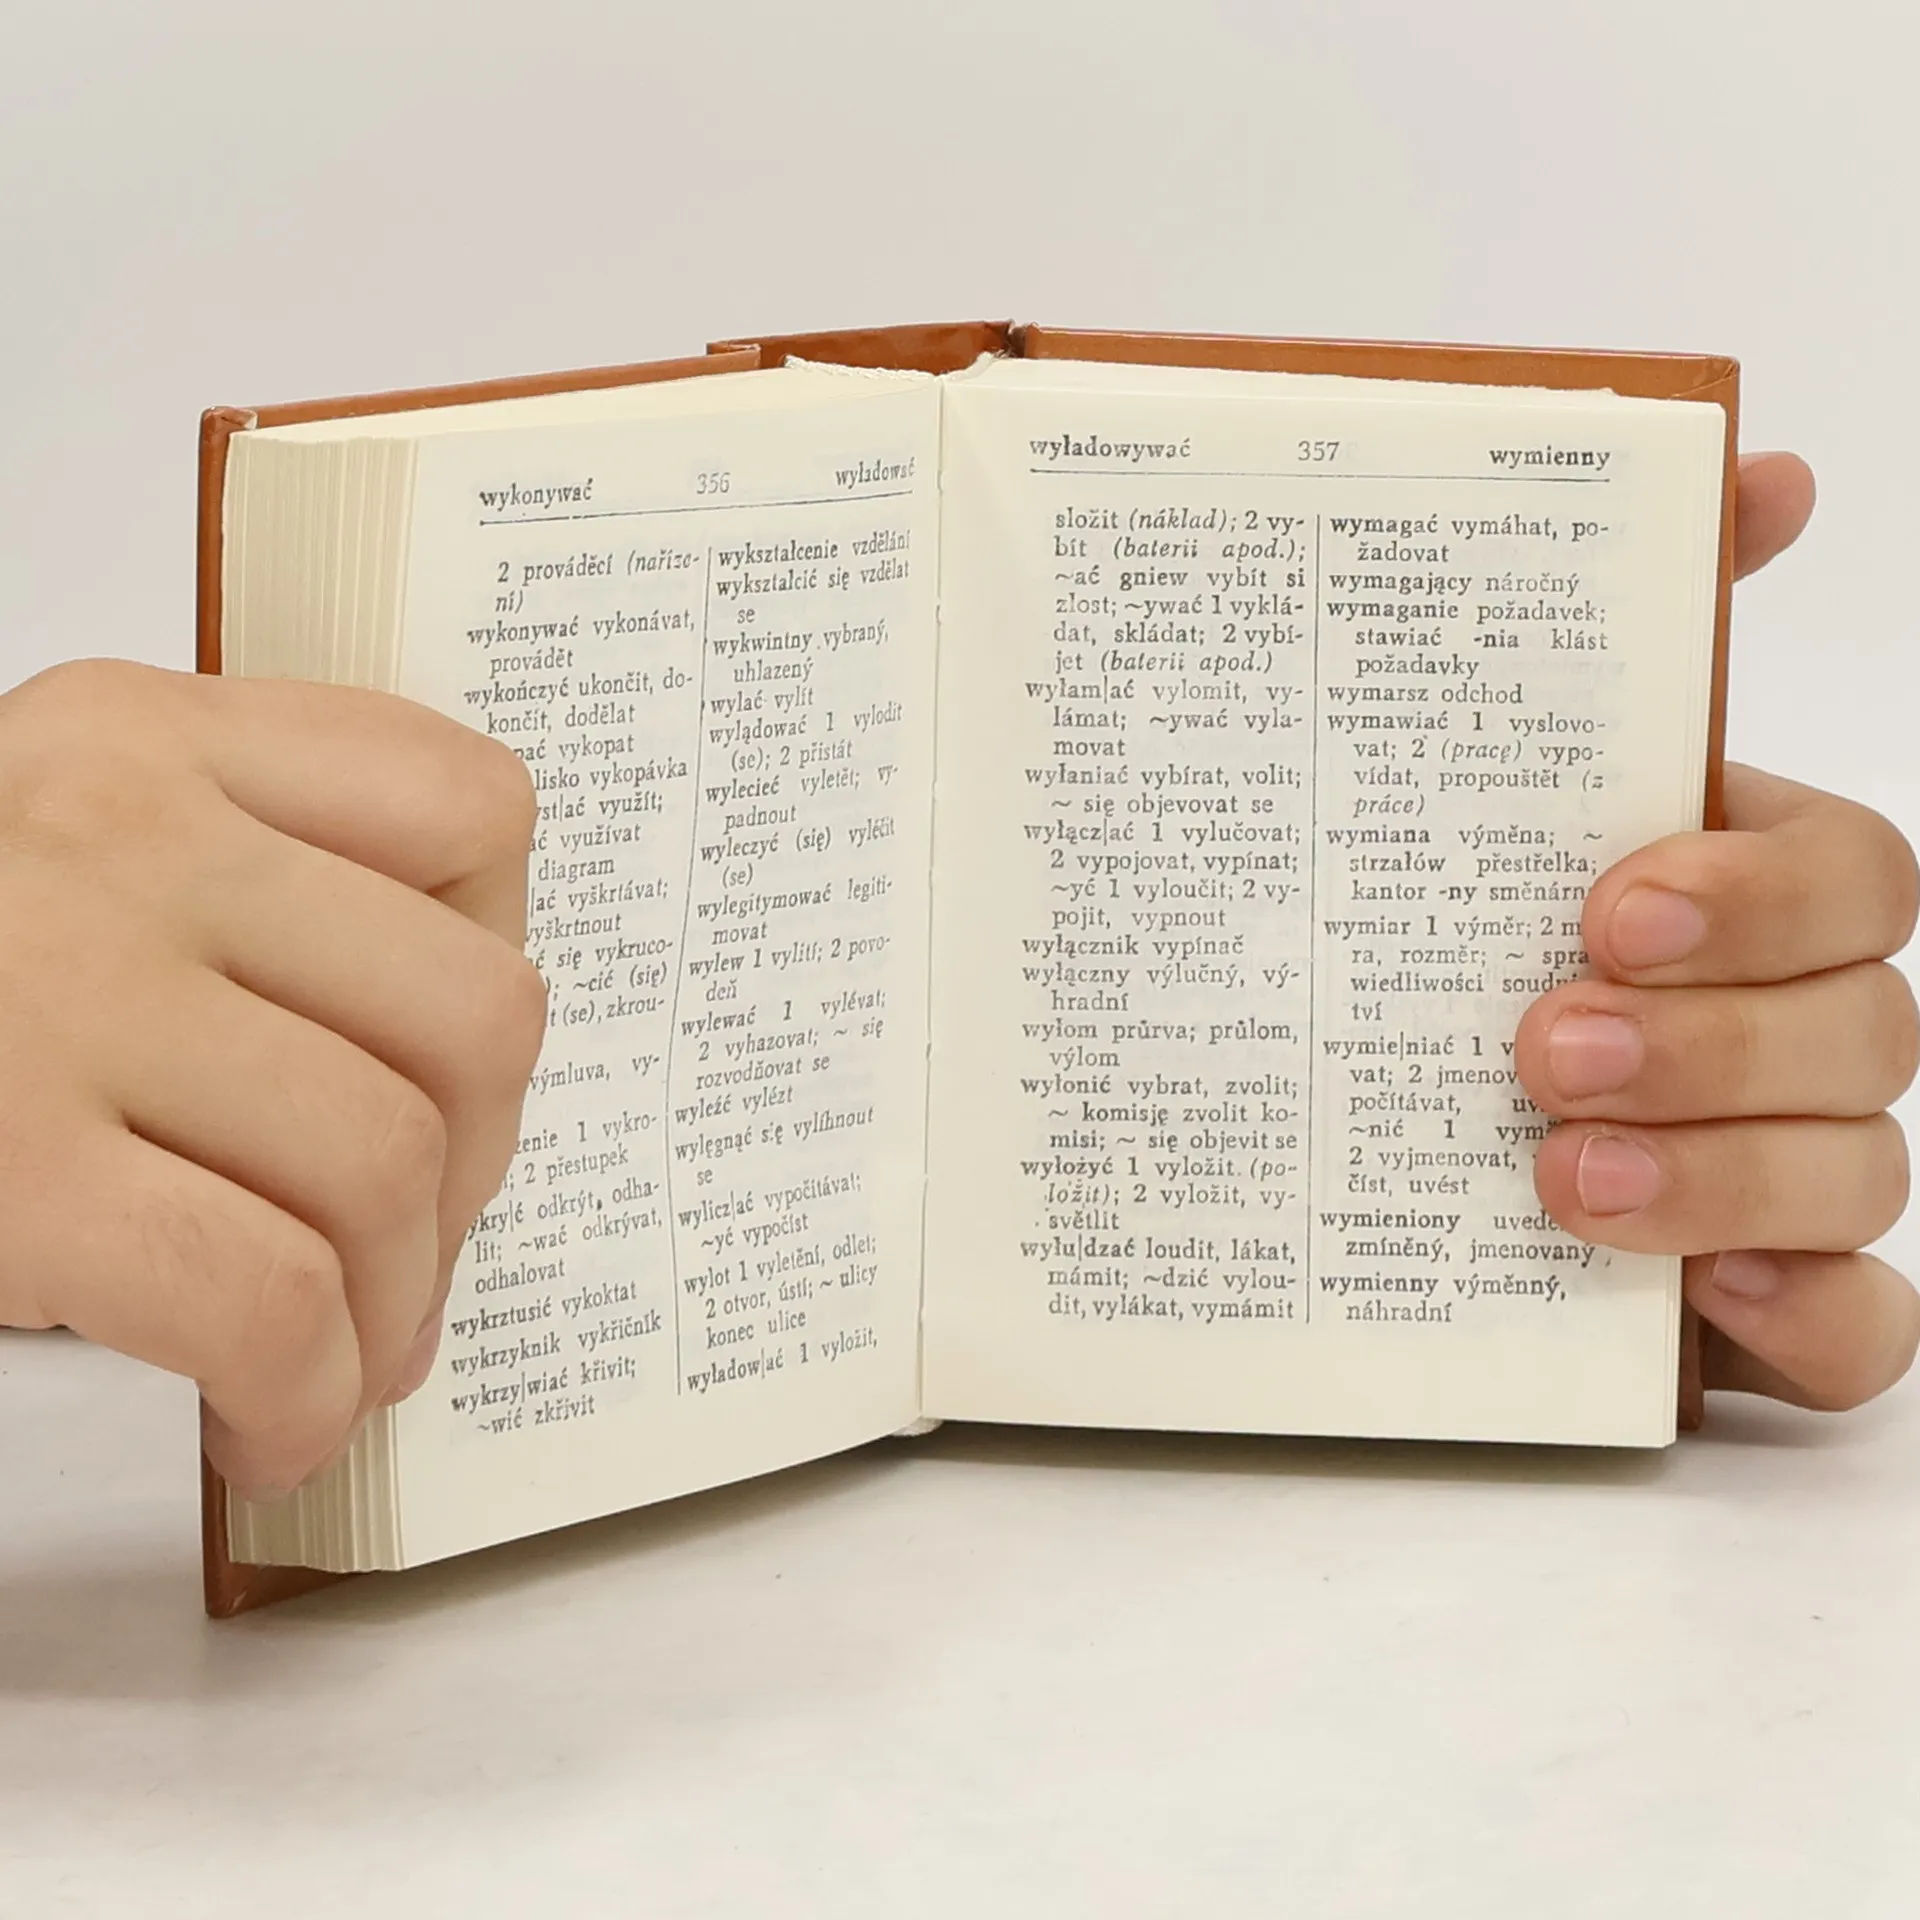 wykonywać 356 wyładować
2 prováděcí (naříze-
ní)
wykonywać vykonávat,
provádět
wykończyć ukončit, do-
končit, dodělat
vykopat
vykopávka
využít;
využívat
diagram
vyškrtávat;
vyškrtnout
się vykruco-
~cić (się)
(se), zkrou-
výmluva, vy-
1 vykro-
2 přestupek
odkrýt, odha-
lit; ~wać odkrývat,
odhalovat
wykrztusić vykoktat
wykrzyknik vykřičník
wykrzy|wiać křivit;
~wić zkřivit
wykształcenie vzdělání
wykształcić się vzdělat
se
wykwintny vybraný,
uhlazený
wylać vylít
wylądować 1 vylodit
(se); 2 přistát
wylecieć vyletět; vy-
padnout
wyleczyć (się) vyléčit
(se)
wylegitymować legiti-
movat
wylew 1 vylití; 2 povo-
deň
wylewać 1 vylévat;
2 vyhazovat; ~ się
rozvodňovat se
wyleźć vylézt
wylęgnąć się vylíhnout
se
wylicz|ać vypočítávat;
~yć vypočíst
wylot 1 vyletění, odlet;
2 otvor, ústí; ~ ulicy
konec ulice
wyładow|ać 1 vyložit,
wyładowywać 357 wymienny
složit (náklad); 2 vy-
bít (baterii apod.);
~ać gniew vybít si
zlost; ~ywać 1 vyklá-
dat, skládat; 2 vybí-
jet (baterii apod.)
wyłam|ać vylomit, vy-
lámat; ~ywać vyla-
movat
wyłaniać vybírat, volit;
~ się objevovat se
wyłącz|ać 1 vylučovat;
2 vypojovat, vypínat;
~yć 1 vyloučit; 2 vy-
pojit, vypnout
wyłącznik vypínač
wyłączny výlučný, vý-
hradní
wyłom průrva; průlom,
výlom
wyłonić vybrat, zvolit;
~ komisję zvolit ko-
misi; ~ się objevit se
wyłożyć 1 vyložit (po-
ložit); 2 vyložit, vy-
světlit
wyłu|dzać loudit, lákat,
mámit; ~dzić vylou-
dit, vylákat, vymámit
wymagać vymáhat, po-
žadovat
wymagający náročný
wymaganie požadavek;
stawiać -nia klást
požadavky
wymarsz odchod
wymawiać 1 vyslovo-
vat; 2 (pracę) vypo-
vídat, propouštět (z
práce)
wymiana výměna; ~
strzałów přestřelka;
kantor -ny směnárn
wymiar 1 výměr; 2
ra, rozměr; ~ spra
wiedliwości
tví
wymie|niać 1
vat; 2
počítávat,
~nić 1
2 vyjmenovat,
číst, uvést
wymieniony
zmíněný, jmenovaný
wymienny výměnný,
náhradní